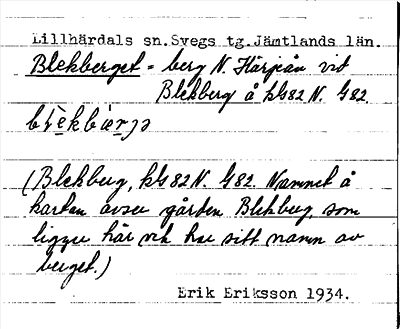 Lillhärdals sn. Svegs tg. Jämtlands län.
Blekberget = berg N. Härjeån vid
Blekberg å kbl 82 N. G 82.

(Blekberg, kbl 82 N. G 82. Namnet å
kartan avser gården Blekberg, som
ligger här och har sitt namn av
berget.)
Erik Eriksson 1934.